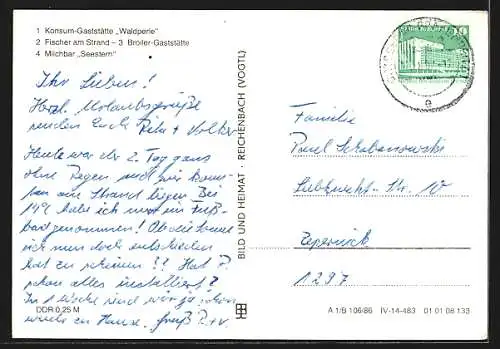 1 Konsum-Gaststätte „Waldperle"
2 Fischer am Strand – 3 Broiler-Gaststätte
4 Milchbar „Seestern"
Ihr Lieben!
Herzl. Urlaubsgrüße
senden Euch + Volker
Heute war der 2. Tag ganz
ohne Regen und wir konn-
ten am Strand liegen. Bei
14°C habe ich nur ein Fuß-
bad genommen! Ob die Sonne
ich nun doch entschieden
hat zu scheinen?? Hat
schon alles installiert?
In 1 Woche sind wir ja schon
wieder zu Hause. Gruß R+V.
DDR 0,25 M
BILD UND HEIMAT · REICHENBACH (VOGTL)
20
Familie
Paul Schabanowski
Liebknecht-Str. 10
Zepernick
1297
A 1/B 106/86 IV-14-483 01 01 08 133